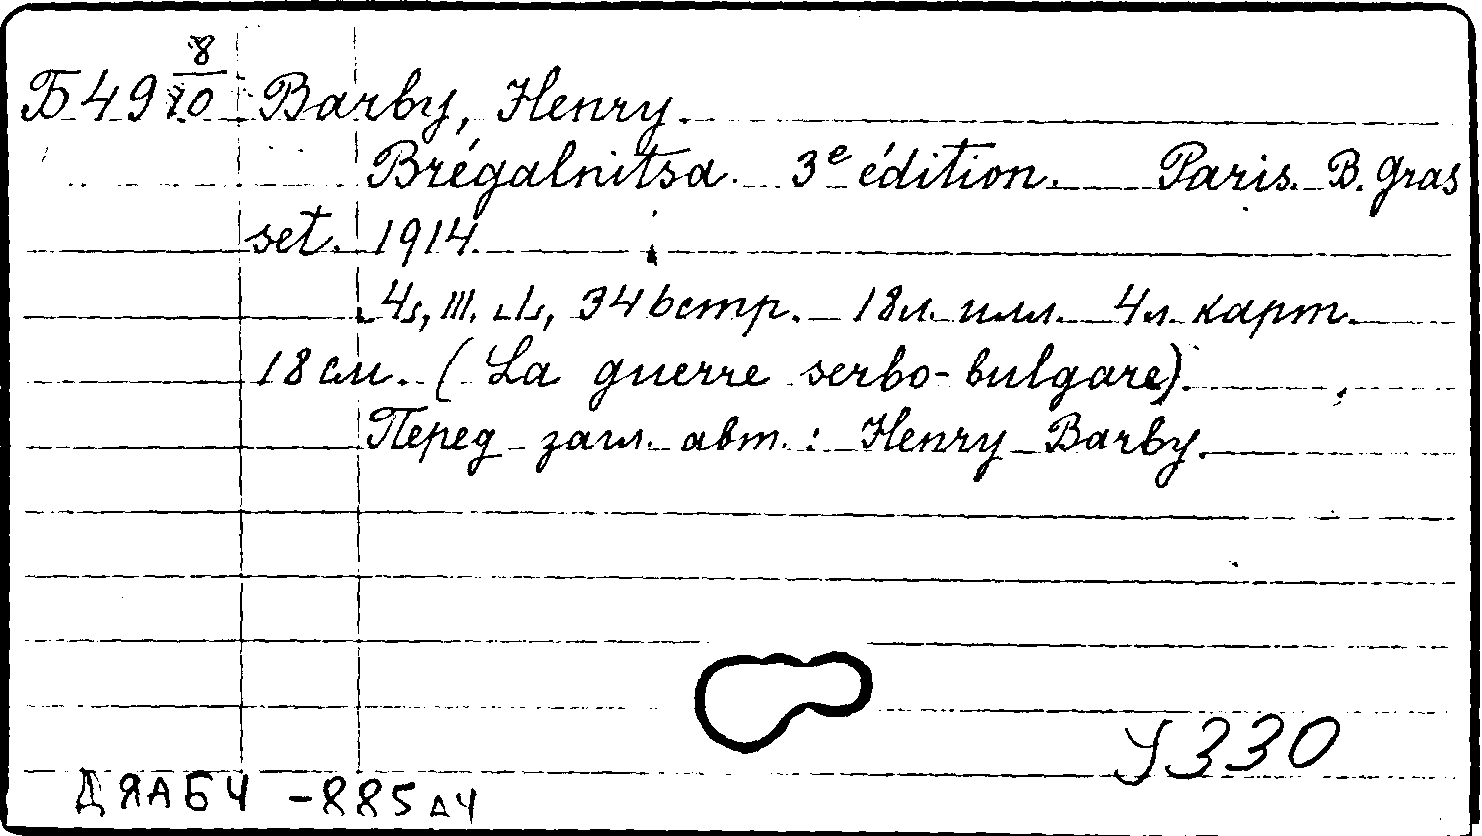 Б 49 8/10 Barby, Henry.
Brégalnitsa. 3e édition. Paris. B. Gras
set. 1914.
346 стр. 18 л. илл. 4 л. карт.
18 см. (La guerre serbo-bulgare).
Перед загл. авт.: Henry Barby.
У 330
ДЯАБЧ -885Д4